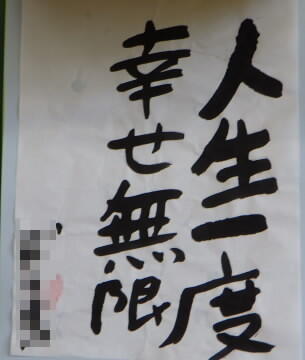 人生一度
幸せ無限